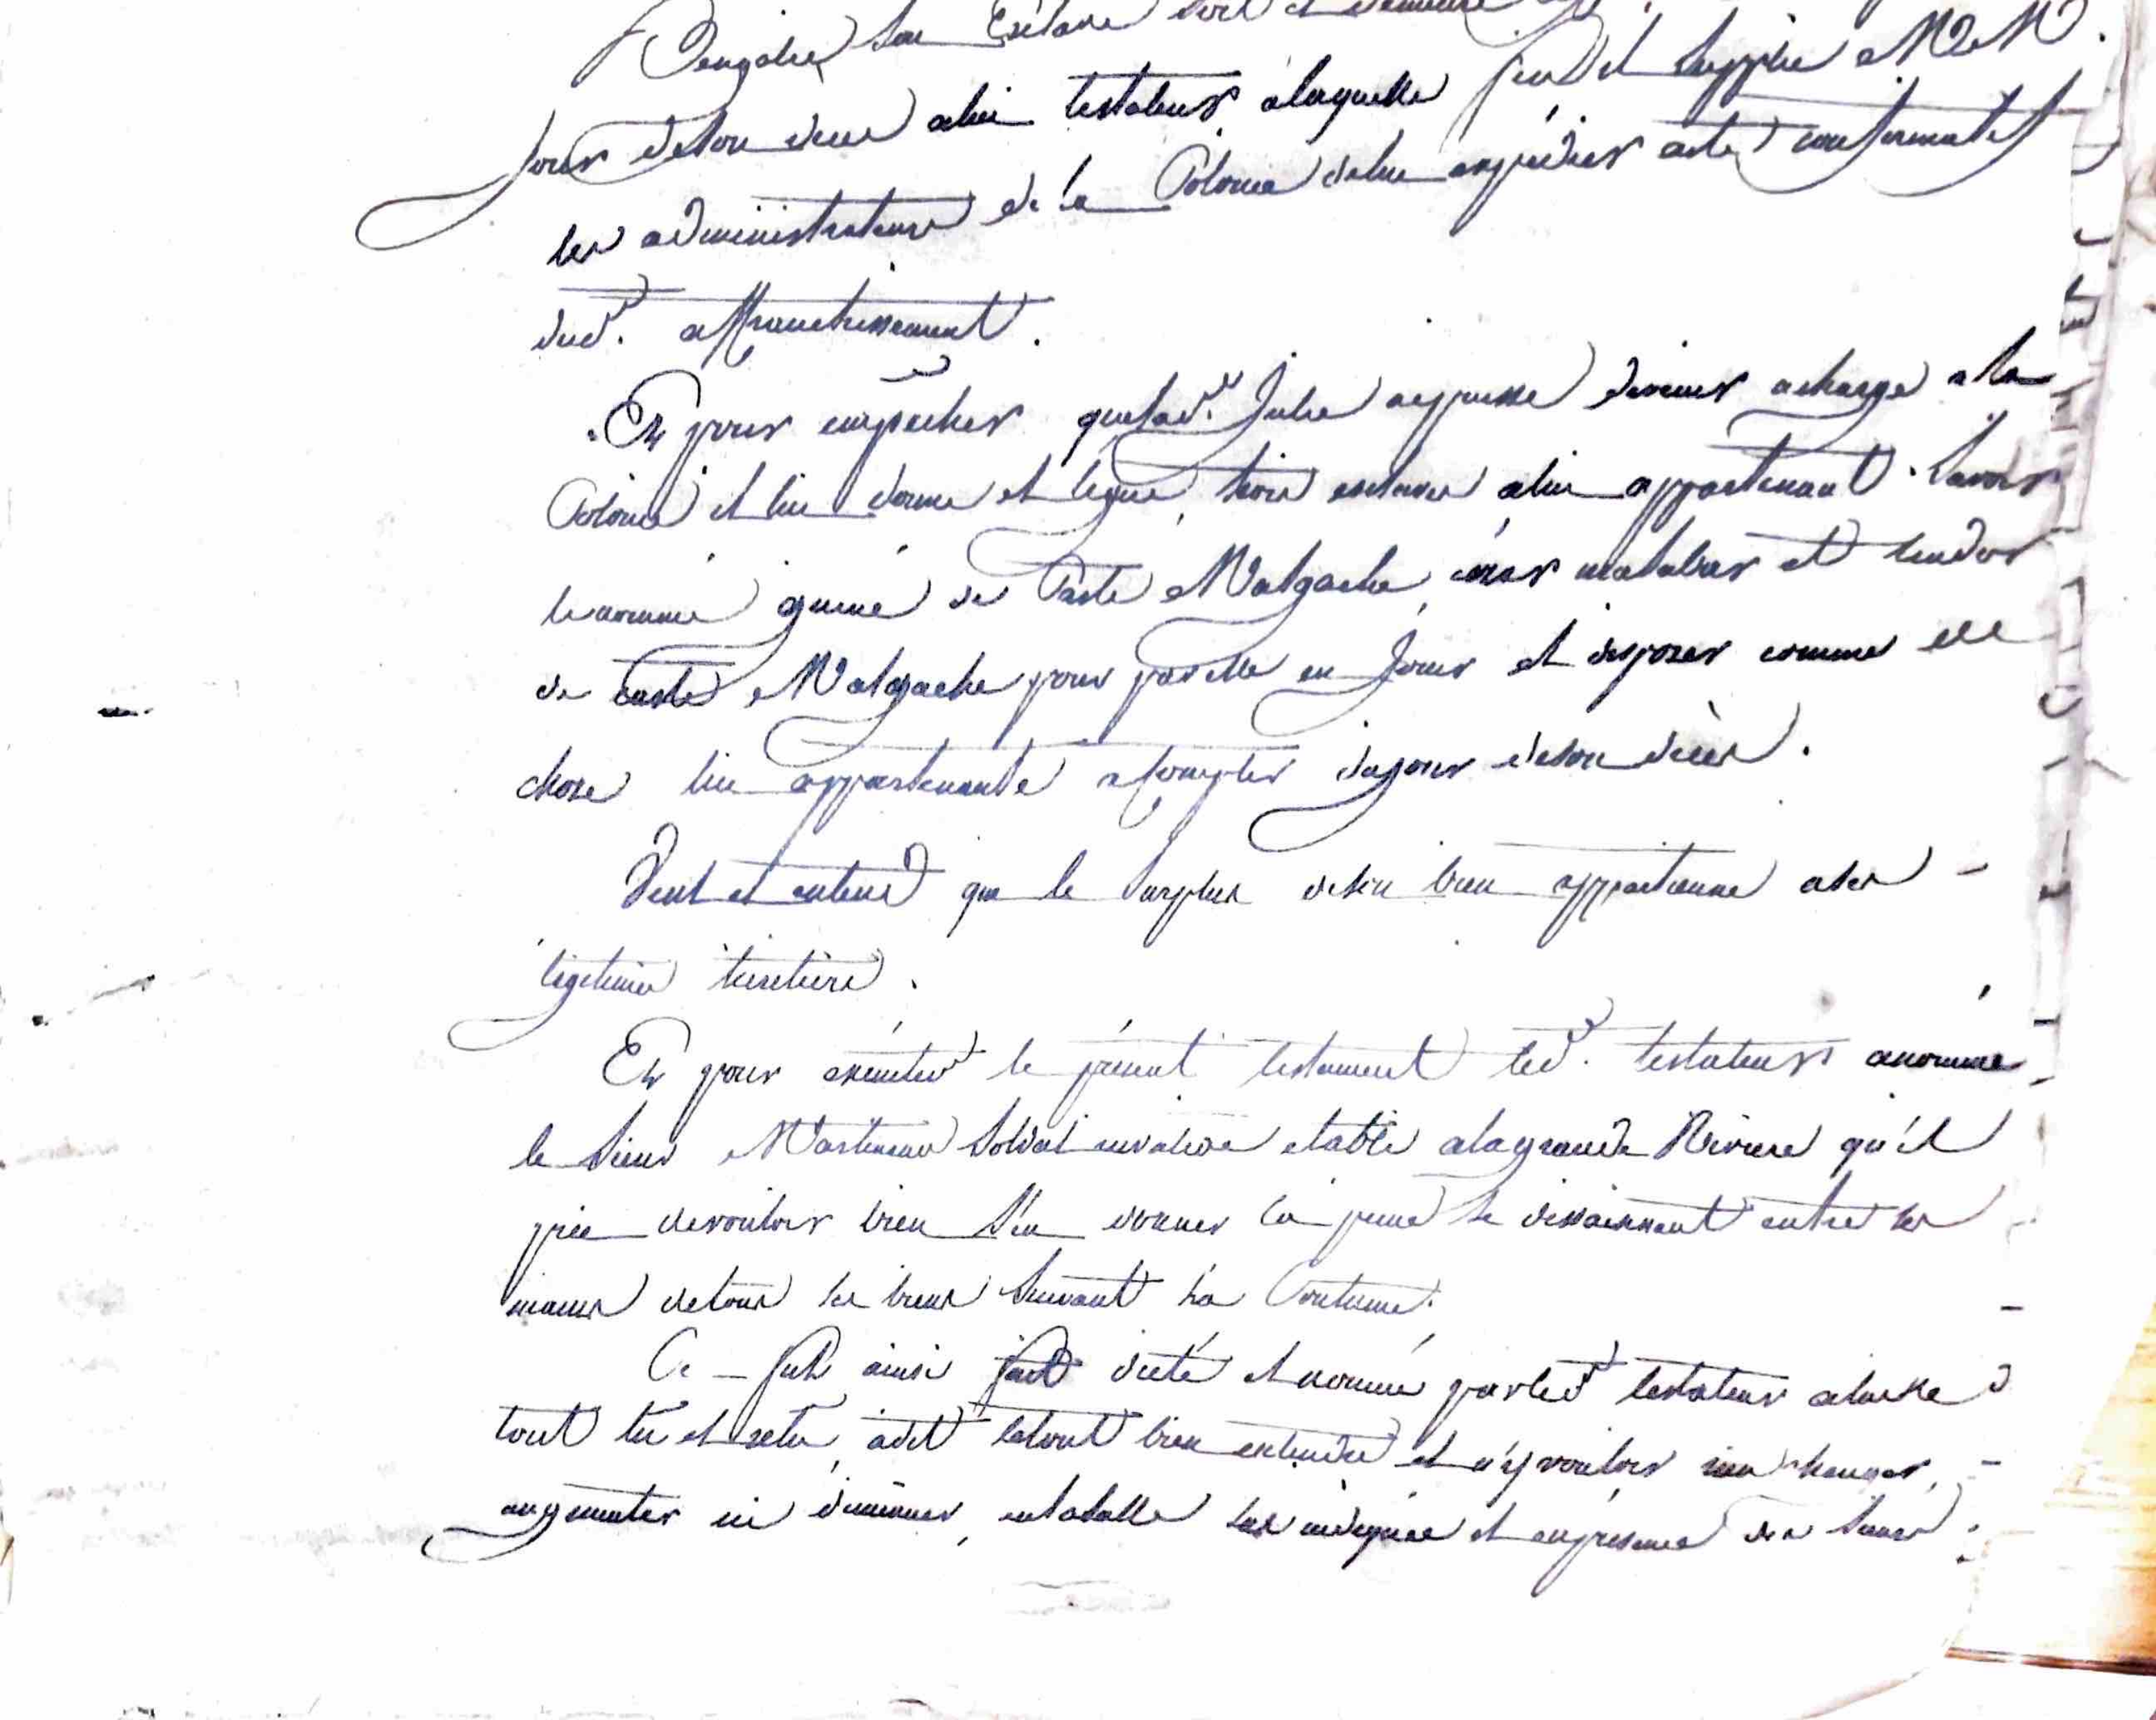 Bengalie son Esclave soit et demeure
jour deson deces alui testateur alaquelle fin il supplie M.M.
les administrateurs de la Colonie delui expedier acte conformatif
dud. affranchissement.
Et pour empecher quelad. Julie nepuisse devenir acharge ala
Colonie il lui donne et legue, trois esclaves alui appartenant. Savoir
lenommé de Caste Malgache, malabar et
de caste Malgache pour parelle en Jouir et disposer comme de
chose lui appartenante acompter dujour deson décès.
Veut et entend que le surplus deson bien appartienne ases
legitimes heritiers.
Et pour executer le présent testament led. testateur anommé
le Sieur Martineau Soldat invalide etabli alagrande Riviere qu'il
prie devouloir bien s'en donner la peine se dessaisissant entre ses
mains detous ses biens suivant la Coutume.
Ce fut ainsi fait dicté et nommé parled testateur
tout lu et relu, adit letout bien entendre et n'y vouloir rien changer,
augmenter ni diminuer, entasalle susindiquée et enpresence des Sieurs